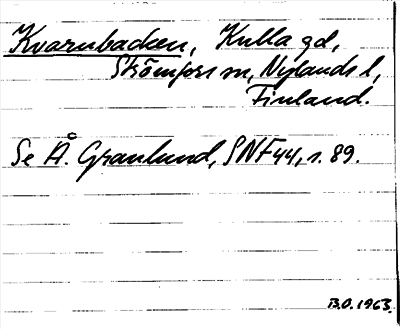 Kvarnbacken, Kulla gd,
Strömfors sn, Nylands l,
Finland.
Se Å. Granlund, SNF 44, s. 89.
B.O. 1963.